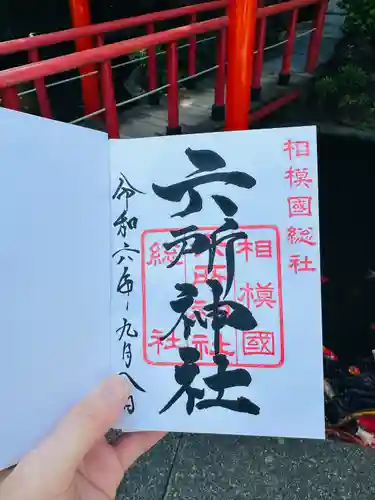 相模國総社
六所神社
相模國
六所神社
総社
令和六年九月八日